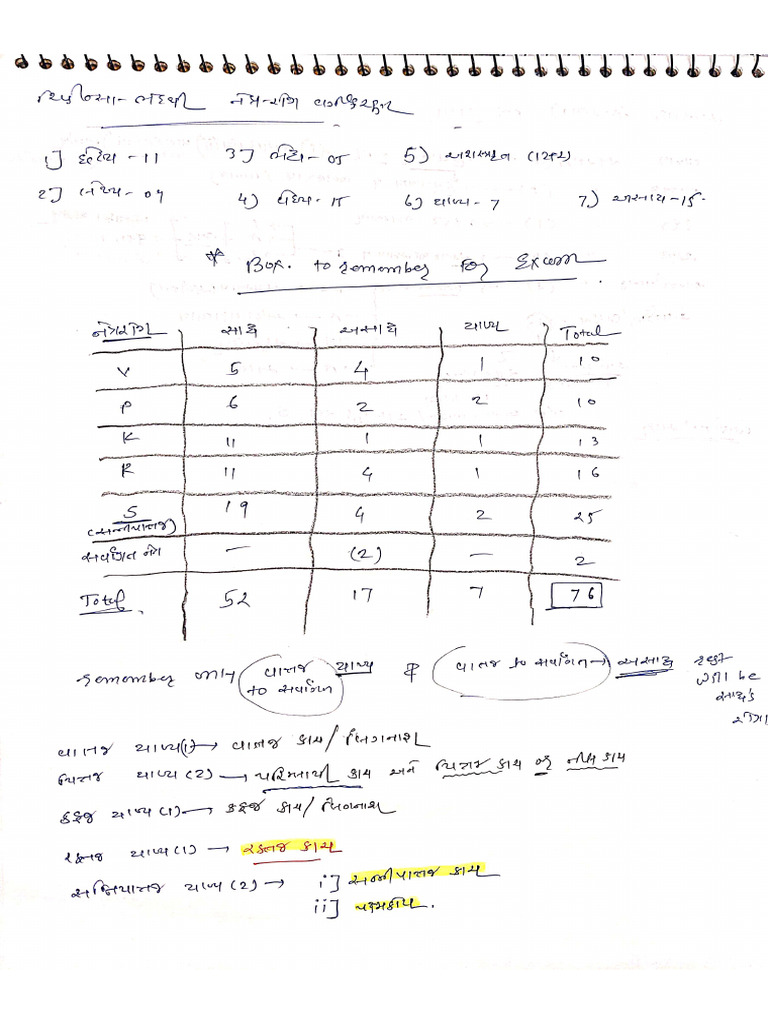 ચિકીત્સા-ભેદથી નેત્ર-રોગ વર્ગીકરણ
1] છેદ્ય - 11 3] ભેદ્ય - 05 5) અશસ્ત્રકૃત (12)
2] લેખ્ય - 09 4) વેધ્ય - 15 6) યાપ્ય - 7 7) અસાધ્ય - 15.
* Box. to remember for Exam
નેત્રરોગ સાધ્ય અસાધ્ય યાપ્ય Total
V 5 4 1 10
P 6 2 2 10
K 11 1 1 13
R 11 4 1 16
S 19 4 2 25
(સન્નીપાતજ)
સર્વગત નેત્ર — (2) — 2
Total 52 17 7 76
remember only વાતજ યાપ્ય & વાતજ to સર્વગત → અસાધ્ય rest
to સર્વગત will be
સાધ્ય
રોગ
વાતજ યાપ્ય (1) → વાતજ કાચ / લિંગનાશ
પિત્તજ યાપ્ય (2) → પરિમ્લાયી કાચ અને પિત્તજ કાચ or નીલ કાચ
કફજ યાપ્ય (1) → કફજ કાચ / લિંગનાશ
રક્તજ યાપ્ય (1) → રક્તજ કાચ
સન્નિપાતજ યાપ્ય (2) → i] સન્નીપાતજ કાચ
ii] પક્ષ્મકોપ.